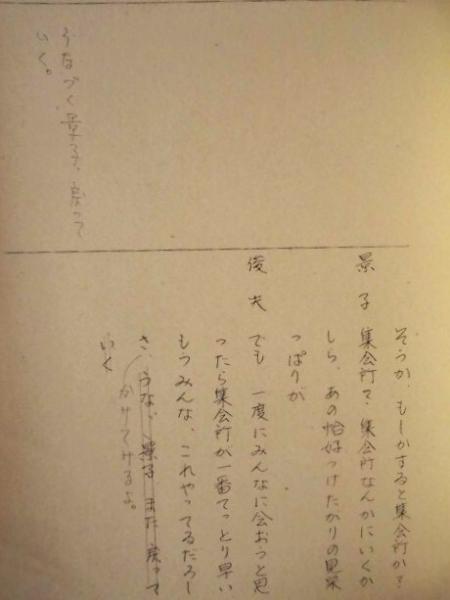 うなづく景子、戻って
いく。
そうか、もしかすると集会所か?
景子 集会所?集会所なんかにいくか
しら、あの恰好つけたがりの見栄
っぱりが
俊夫 でも一度にみんなに会おうっと思
ったら集会所が一番てっとり早い
もうみんな、これやってるだろし
さ、うな 景子また戻って
かけてみるよ。
いく